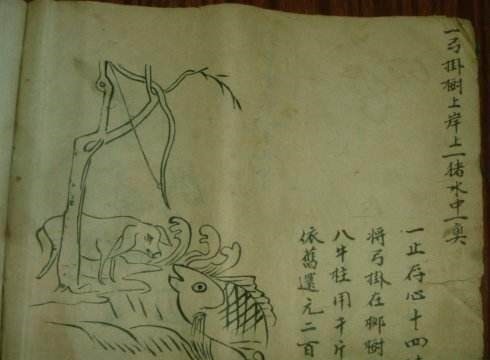 一弓掛樹上岸上一猪水中一𩵋
一止存心十四
將弓掛在樹
八牛柱用千斤
依舊還元二百